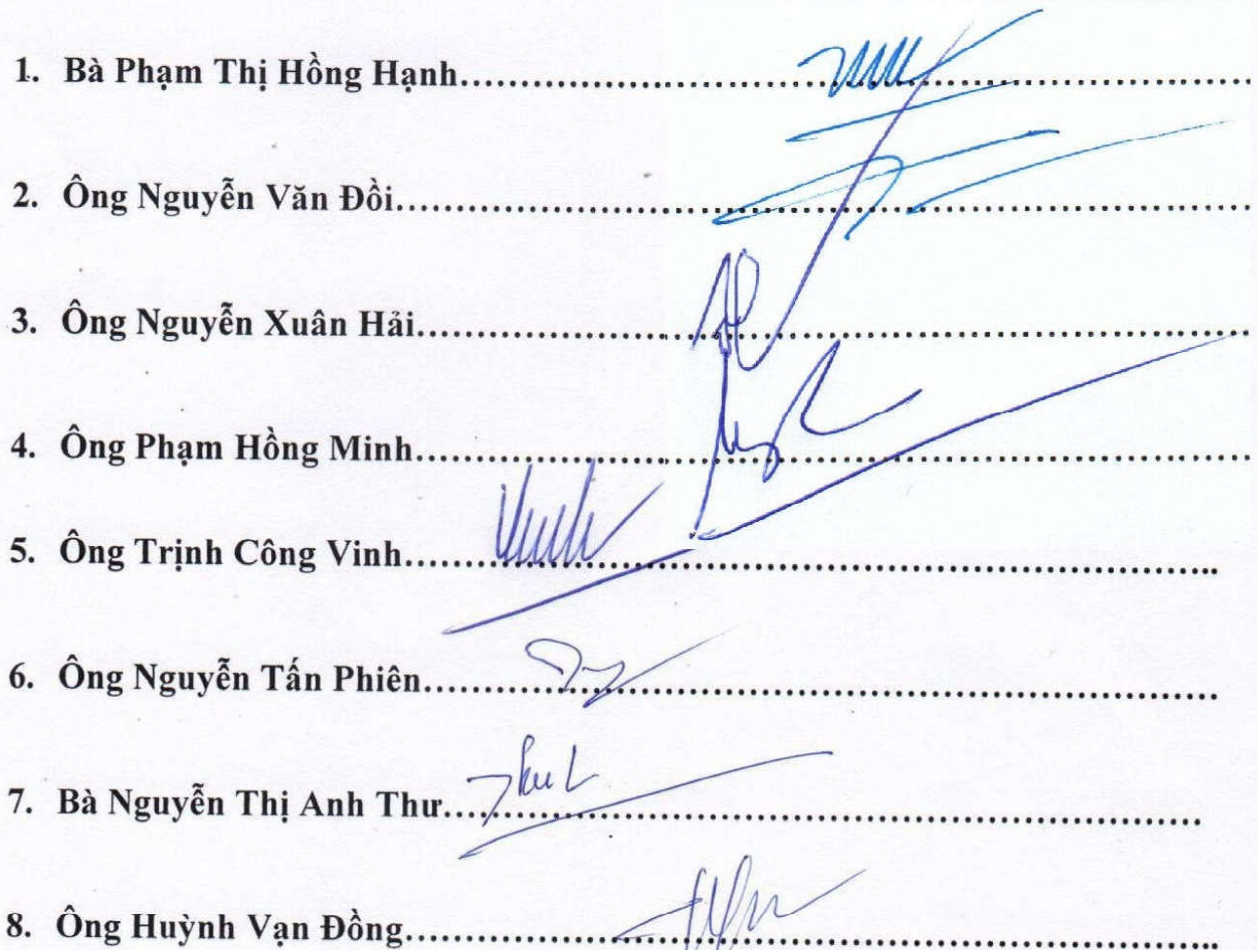 1. Bà Phạm Thị Hồng Hạnh
2. Ông Nguyễn Văn Đồi
3. Ông Nguyễn Xuân Hải
4. Ông Phạm Hồng Minh
5. Ông Trịnh Công Vinh
6. Ông Nguyễn Tấn Phiên
7. Bà Nguyễn Thị Anh Thư
8. Ông Huỳnh Vạn Đồng